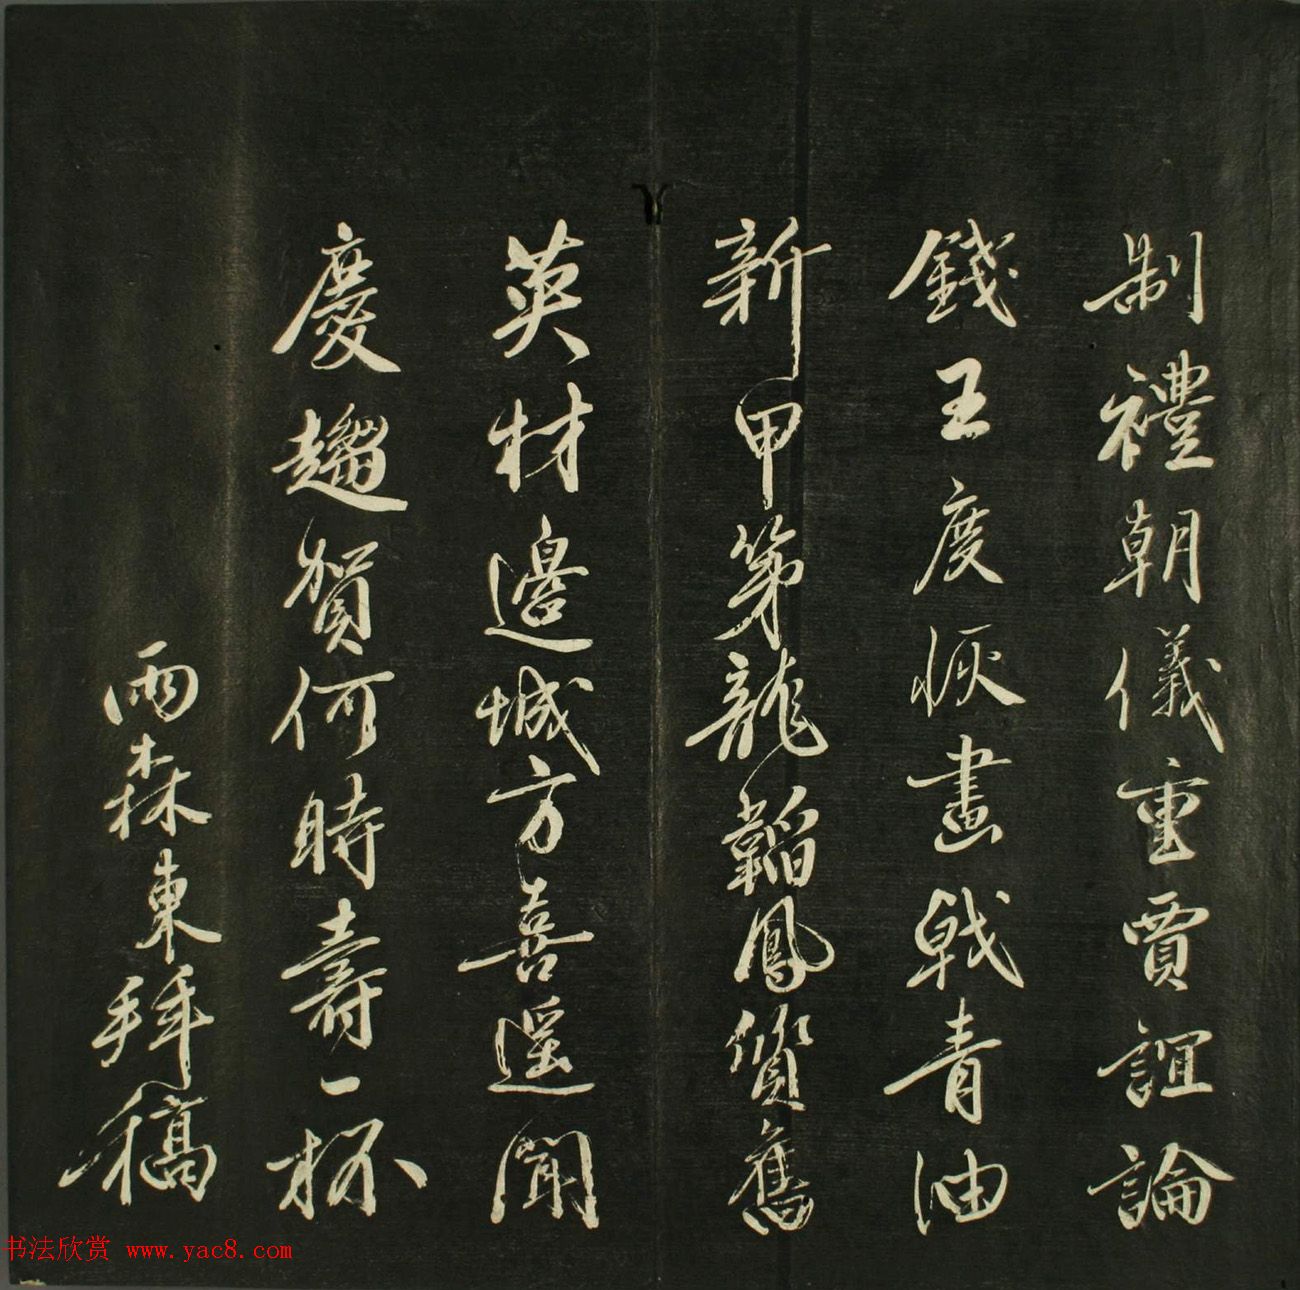 制禮朝儀重賈誼論
錢王度恢畫戟青油
新甲第龍韜鳳質舊
英材邊城方喜遥聞
慶趨賀何時壽一杯
雨森東拜稿
书法欣赏 www.yac8.com